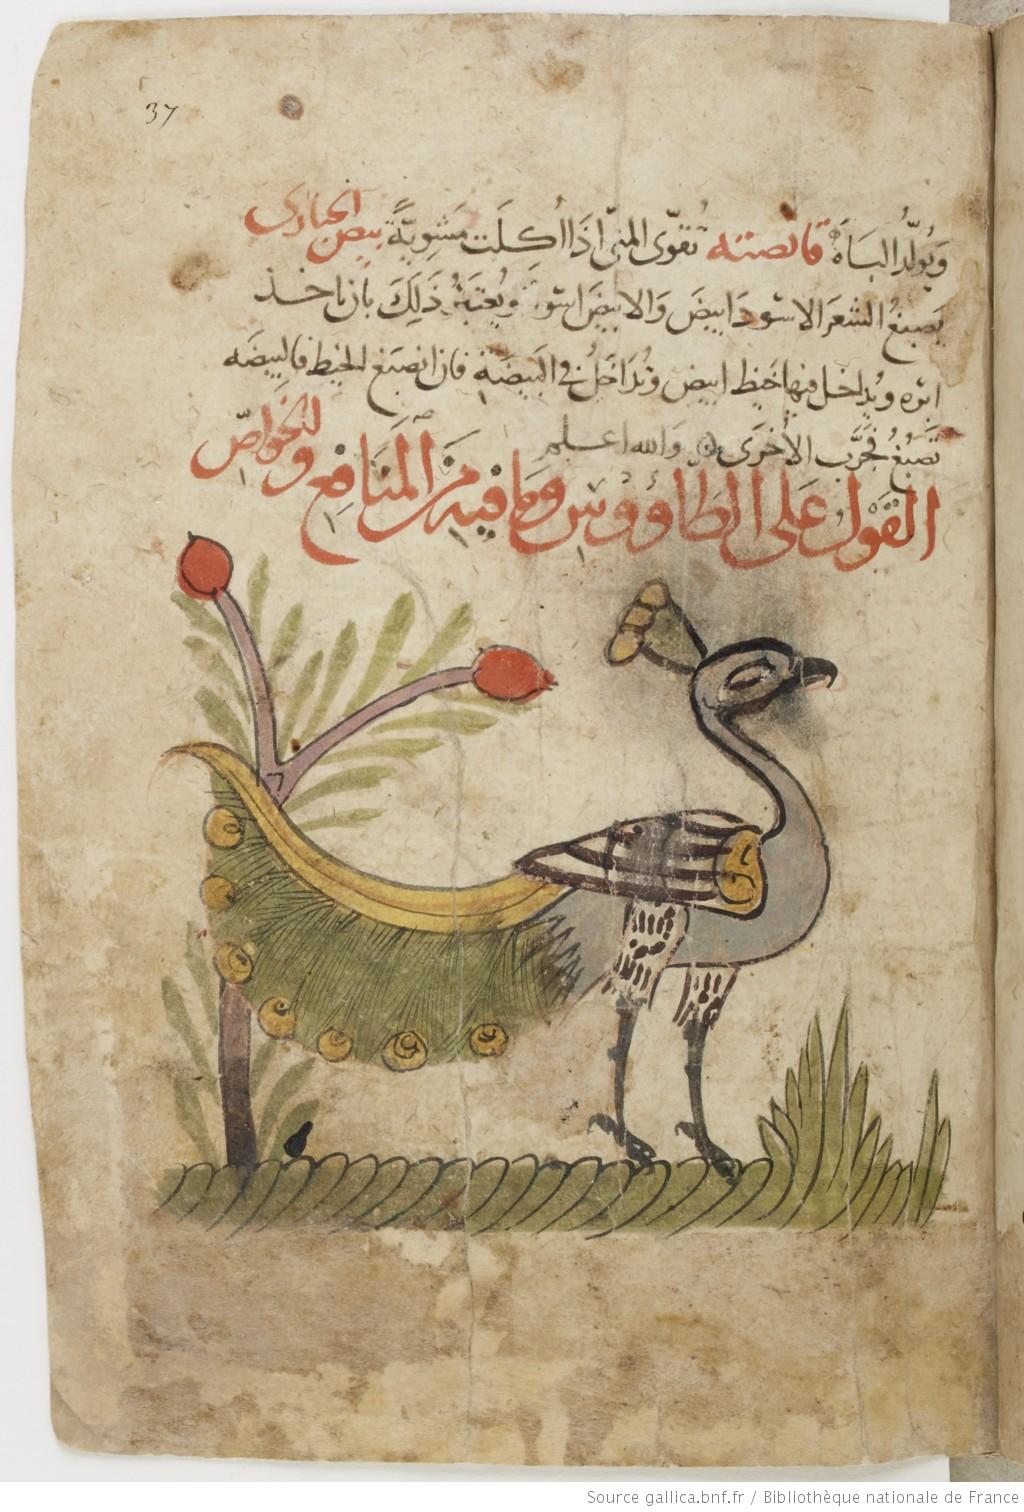 37
وَيُولّدُ البَاَهَ قانصته تُقوّى المنىّ اذَا اُكِلَت مَشوِيّةً بيض الحبارى
يَصبغُ الشعَر الاسوَد ابيضَ وَالابيضَ اسود ويُختبَرُ ذَلِكَ بان ياخذ
ابره ويُداخل فيها خيط ابيض وتُداخَلُ فى البَيضَة فان انصَبَغ الخيط فالبيضه
تَصبُغ فجَرّب الأخرَى وَالله اعلم
القَول عَلى الطاووس وما فيه مِنَ المنَافِع والخواصّ
Source gallica.bnf.fr / Bibliothèque nationale de France